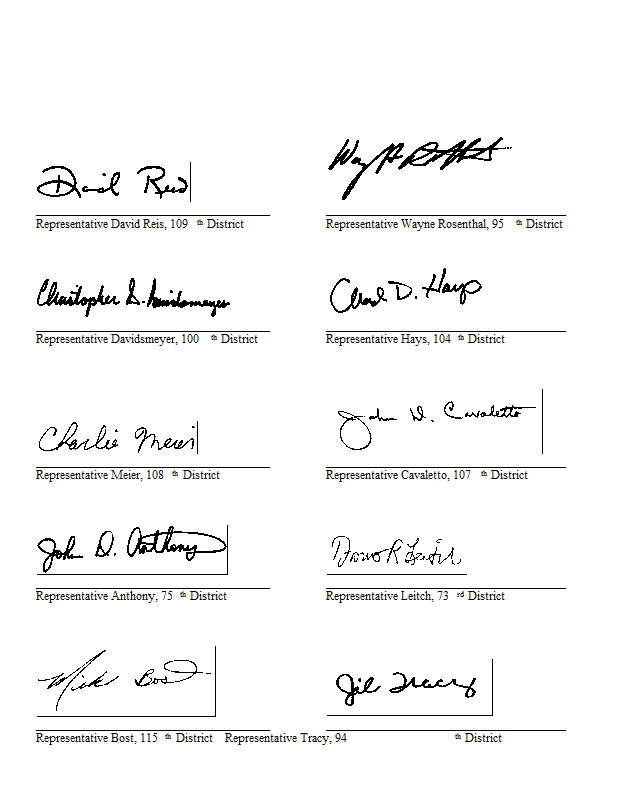 David Reis
Wayne Rosenthal
Representative David Reis, 109 th District
Representative Wayne Rosenthal, 95 th District
Christopher D. Davidsmeyer
Chad D. Hays
Representative Davidsmeyer, 100 th District
Representative Hays, 104 th District
Charlie Meier
John D. Cavaletto
Representative Meier, 108 th District
Representative Cavaletto, 107 th District
John D. Anthony
Representative Anthony, 75 th District
Representative Leitch, 73 rd District
Mike Bost
Jil Tracy
Representative Bost, 115 th District Representative Tracy, 94 th District